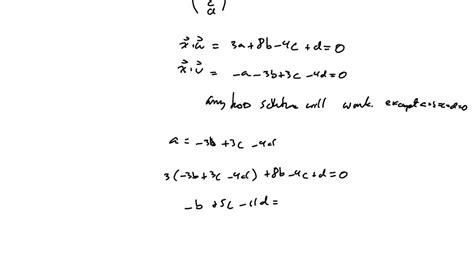 a
x⃗·u⃗ = 3a+8b-4c+d=0
x⃗·v⃗ = -a-3b+3c-4d=0
any two solutions will work. except a=b=c=d=0
a = -3b+3c-4d
3(-3b+3c-4d)+8b-4c+d=0
-b+5c-11d=